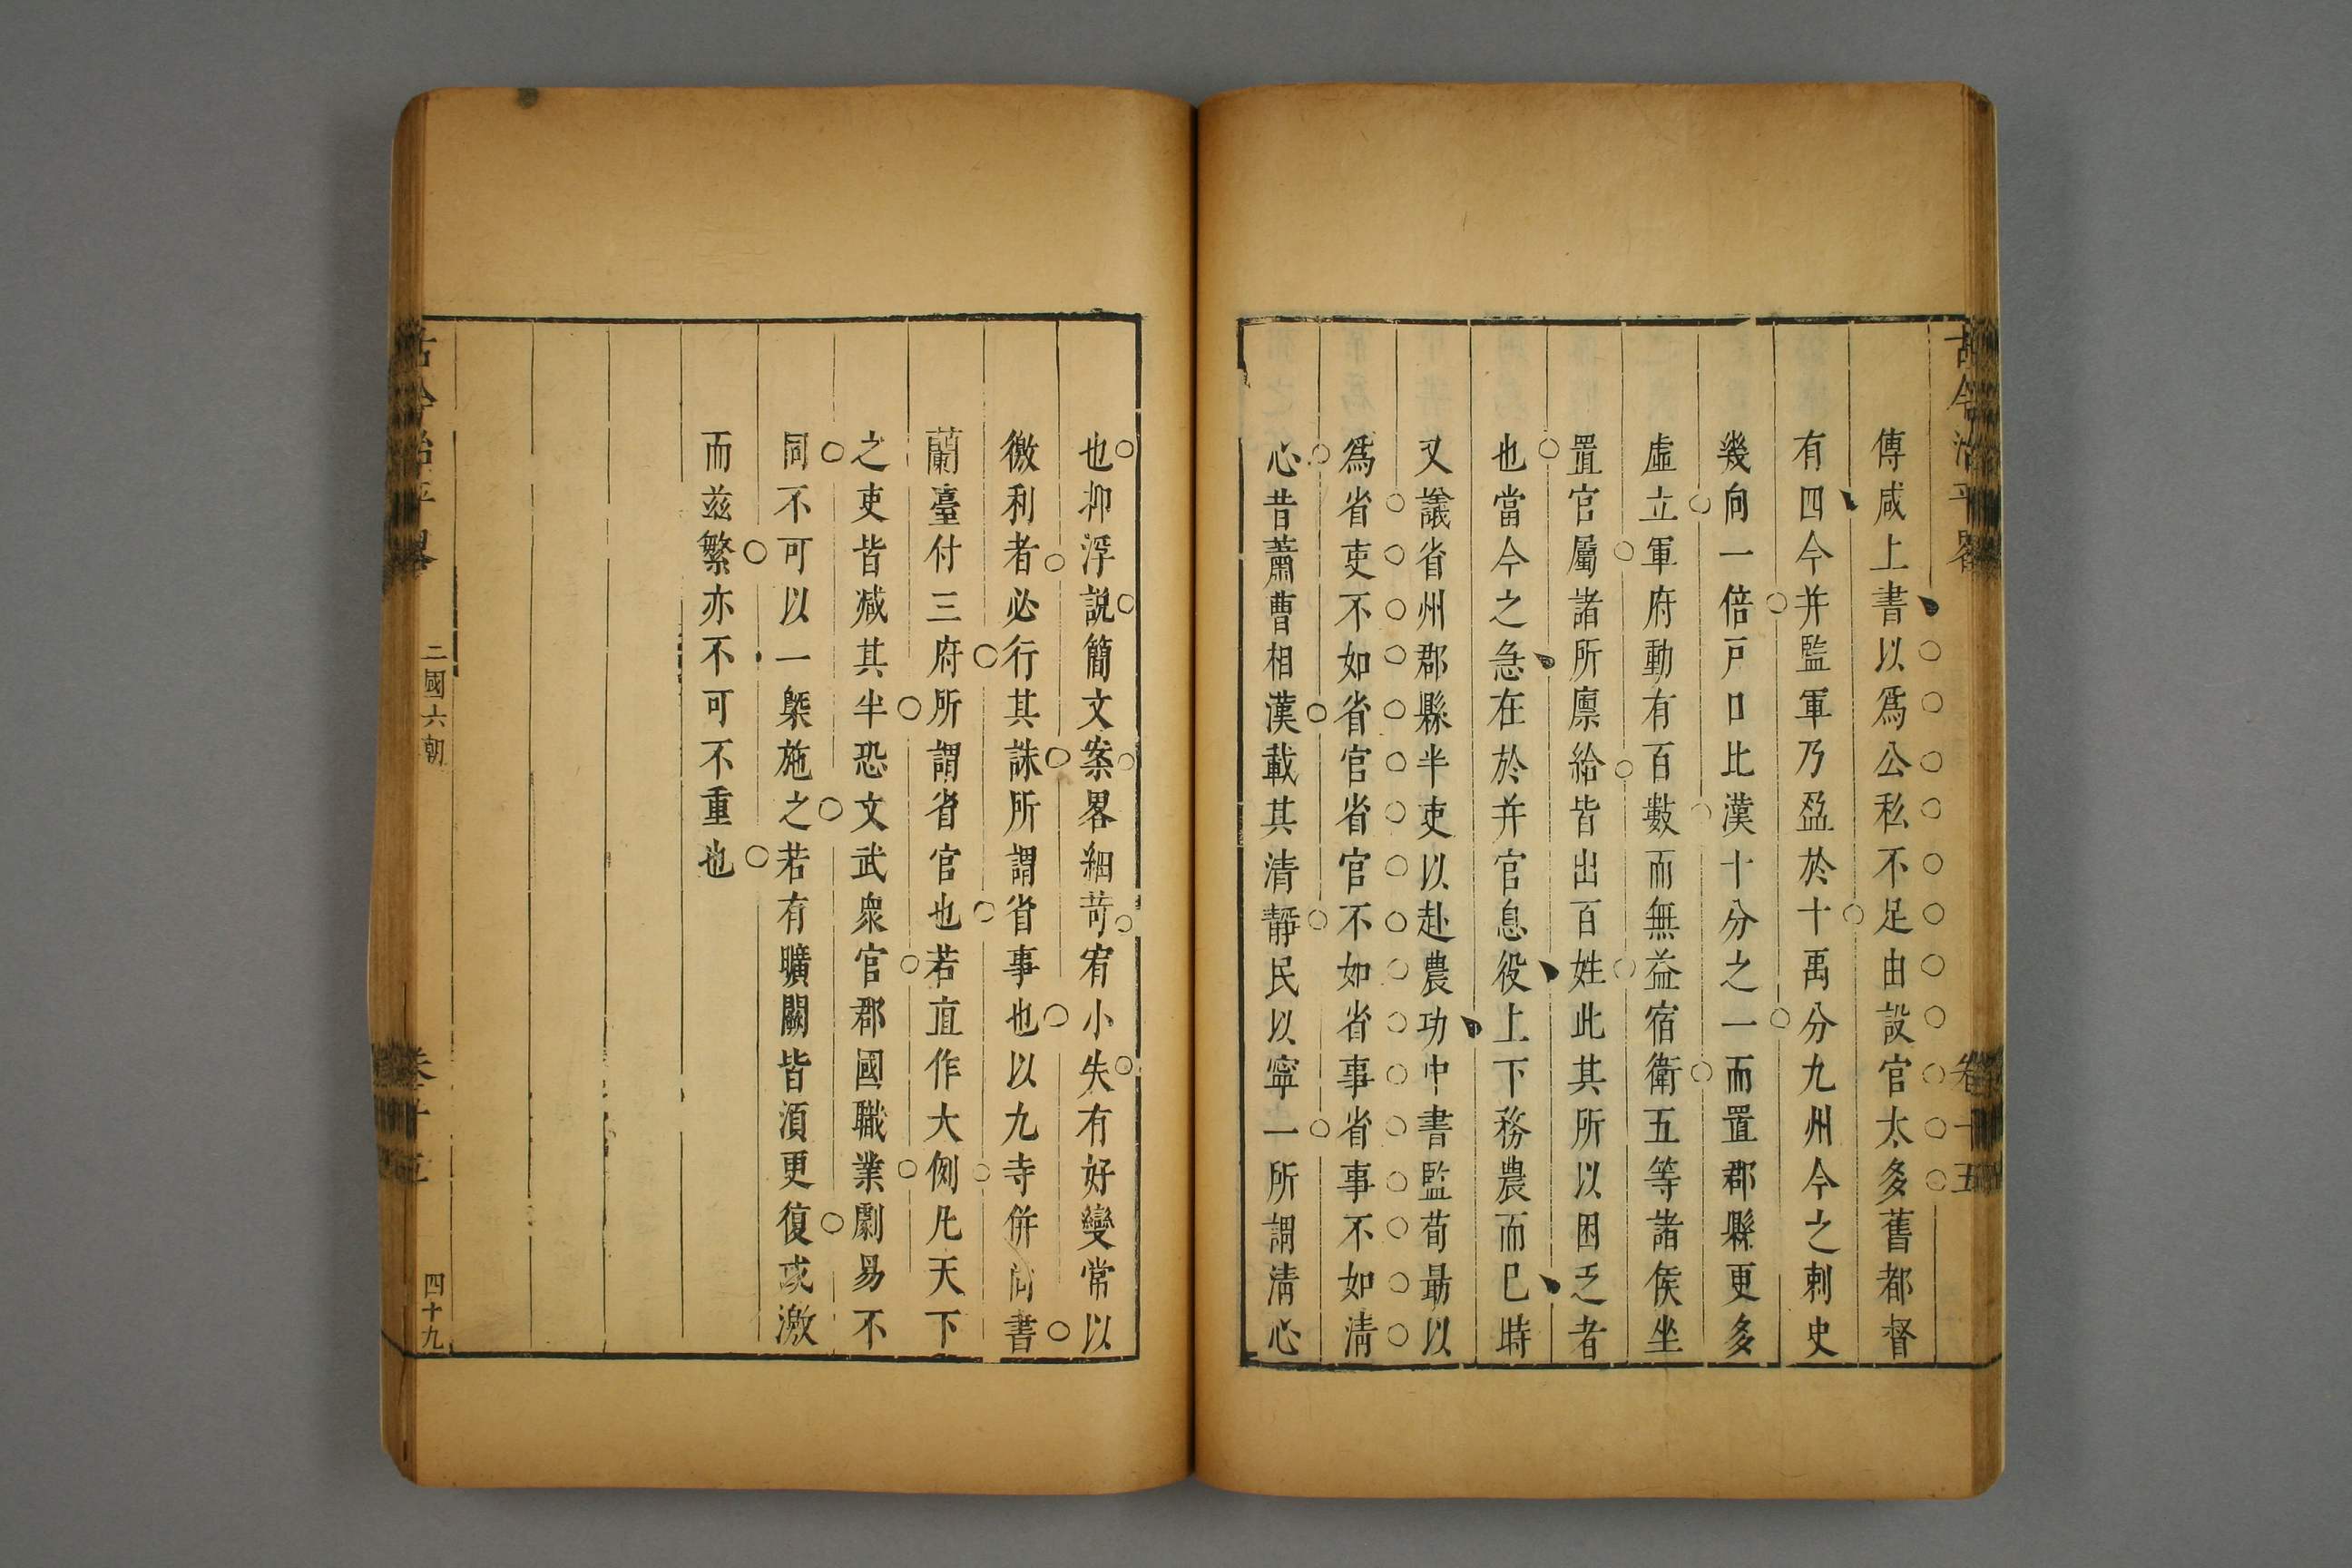 古今治平畧
卷十五
傅咸上書以爲公私不足由設官太多舊都督
有四今并監軍乃盈於十禹分九州今之刺史
幾向一倍戸口比漢十分之一而置郡縣更多
虛立軍府動有百數而無益宿衛五等諸侯坐
置官屬諸所廪給皆出百姓此其所以困乏者
也當今之急在於并官息役上下務農而巳時
又議省州郡縣半吏以赴農功中書監荀朂以
爲省吏不如省官省官不如省事省事不如淸
心昔蕭曹相漢載其清靜民以寧一所謂淸心
也抑浮説簡文案畧細苛宥小失有好變常以
徼利者必行其誅所謂省事也以九寺併尚書
蘭臺付三府所謂省官也若直作大例凢天下
之吏皆减其半恐文武衆官郡國職業劇易不
同不可以一槩施之若有曠闕皆湏更復或激
而兹繁亦不可不重也
古今治平畧
三國六朝
卷十五
四十九